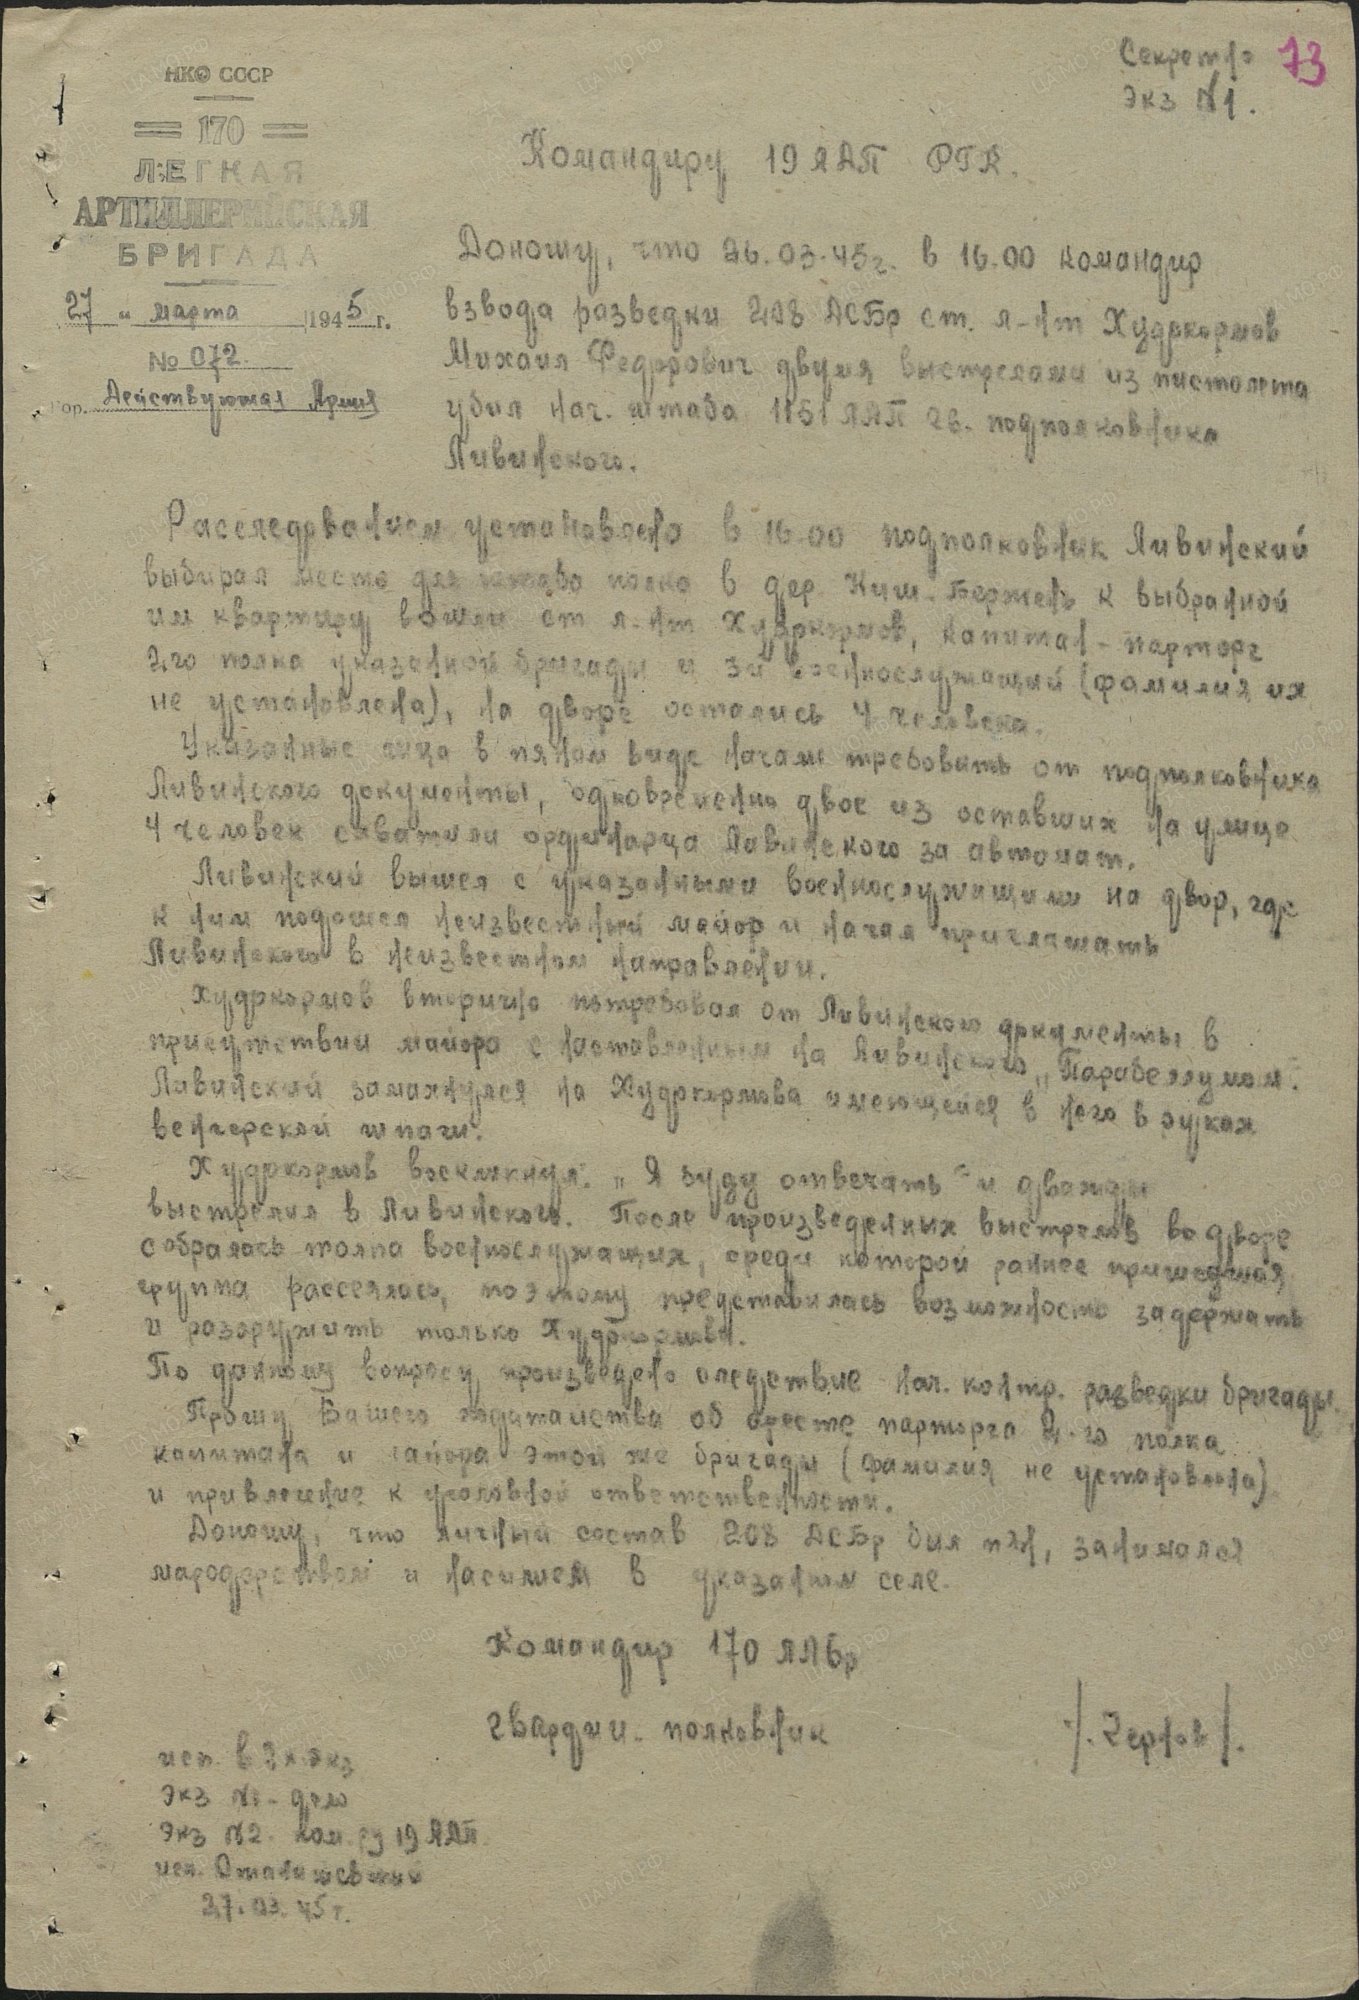 Секретно 73
Экз №1.
НКО СССР
170
ЛЕГКАЯ
АРТИЛЛЕРИЙСКАЯ
БРИГАДА
27 " марта 1945 г.
№ 072
Гор. Действующая Армия
Командиру 19 ЛАП РГК.
Доношу, что 26.03.45г. в 16.00 командир
взвода разведки 208 АСБр ст. л-нт Худокормов
Михаил Федорович двумя выстрелами из пистолета
убил нач. штаба 1151 ЛАП гв. подполковника
Ливинского.
Расследованием установлено в 16.00 подполковник Ливинский
выбирал место для штаба полка в дер. Киш-Бержень к выбранной
им квартиру вошли ст л-нт Худокормов, капитан - парторг
2го полка указанной бригады и 3й военнослужащий (фамилия их
не установлена), на дворе остались 4 человека.
Указанные лица в пяном виде начали требовать от подполковника
Ливинского документы, одновременно двое из оставших на улице
4 человек схватили ординарца Ливинского за автомат.
Ливинский вышел с указанными военнослужащими на двор, где
к ним подошел неизвестный майор и начал приглашать
Ливинского в неизвестном направлении.
Худокормов вторично потребовал от Ливинского документы в
присутствии майора с наставленным на Ливинского "Парабеллумом".
Ливинский замахнулся на Худокормова имеющейся в него в руках
венгерской шпаги.
Худокормов воскликнул: "Я буду отвечать" и дважды
выстрелил в Ливинского. После произведенных выстрелов во дворе
собралась толпа военнослужащих, среди которой ранее пришедшая
группа рассеялась, поэтому представилась возможность задержать
и разоружить только Худокормова.
По данному вопросу произведено следствие нач. контр. разведки бригады.
Прошу Вашего ходатайства об аресте парторга 2-го полка
капитана и майора этой же бригады (фамилия не установлена)
и привлечение к уголовной ответственности.
Доношу, что личный состав 208 АСБр был пян, занимался
мародерством и насилием в указанном селе.
Командир 170 ЛАБр
гвардии - полковник /. Чернов /.
исп. в 2х экз
Экз №1 - дело
Экз №2. Ком-ру 19 ЛАП.
исп.
27.03.45 г.